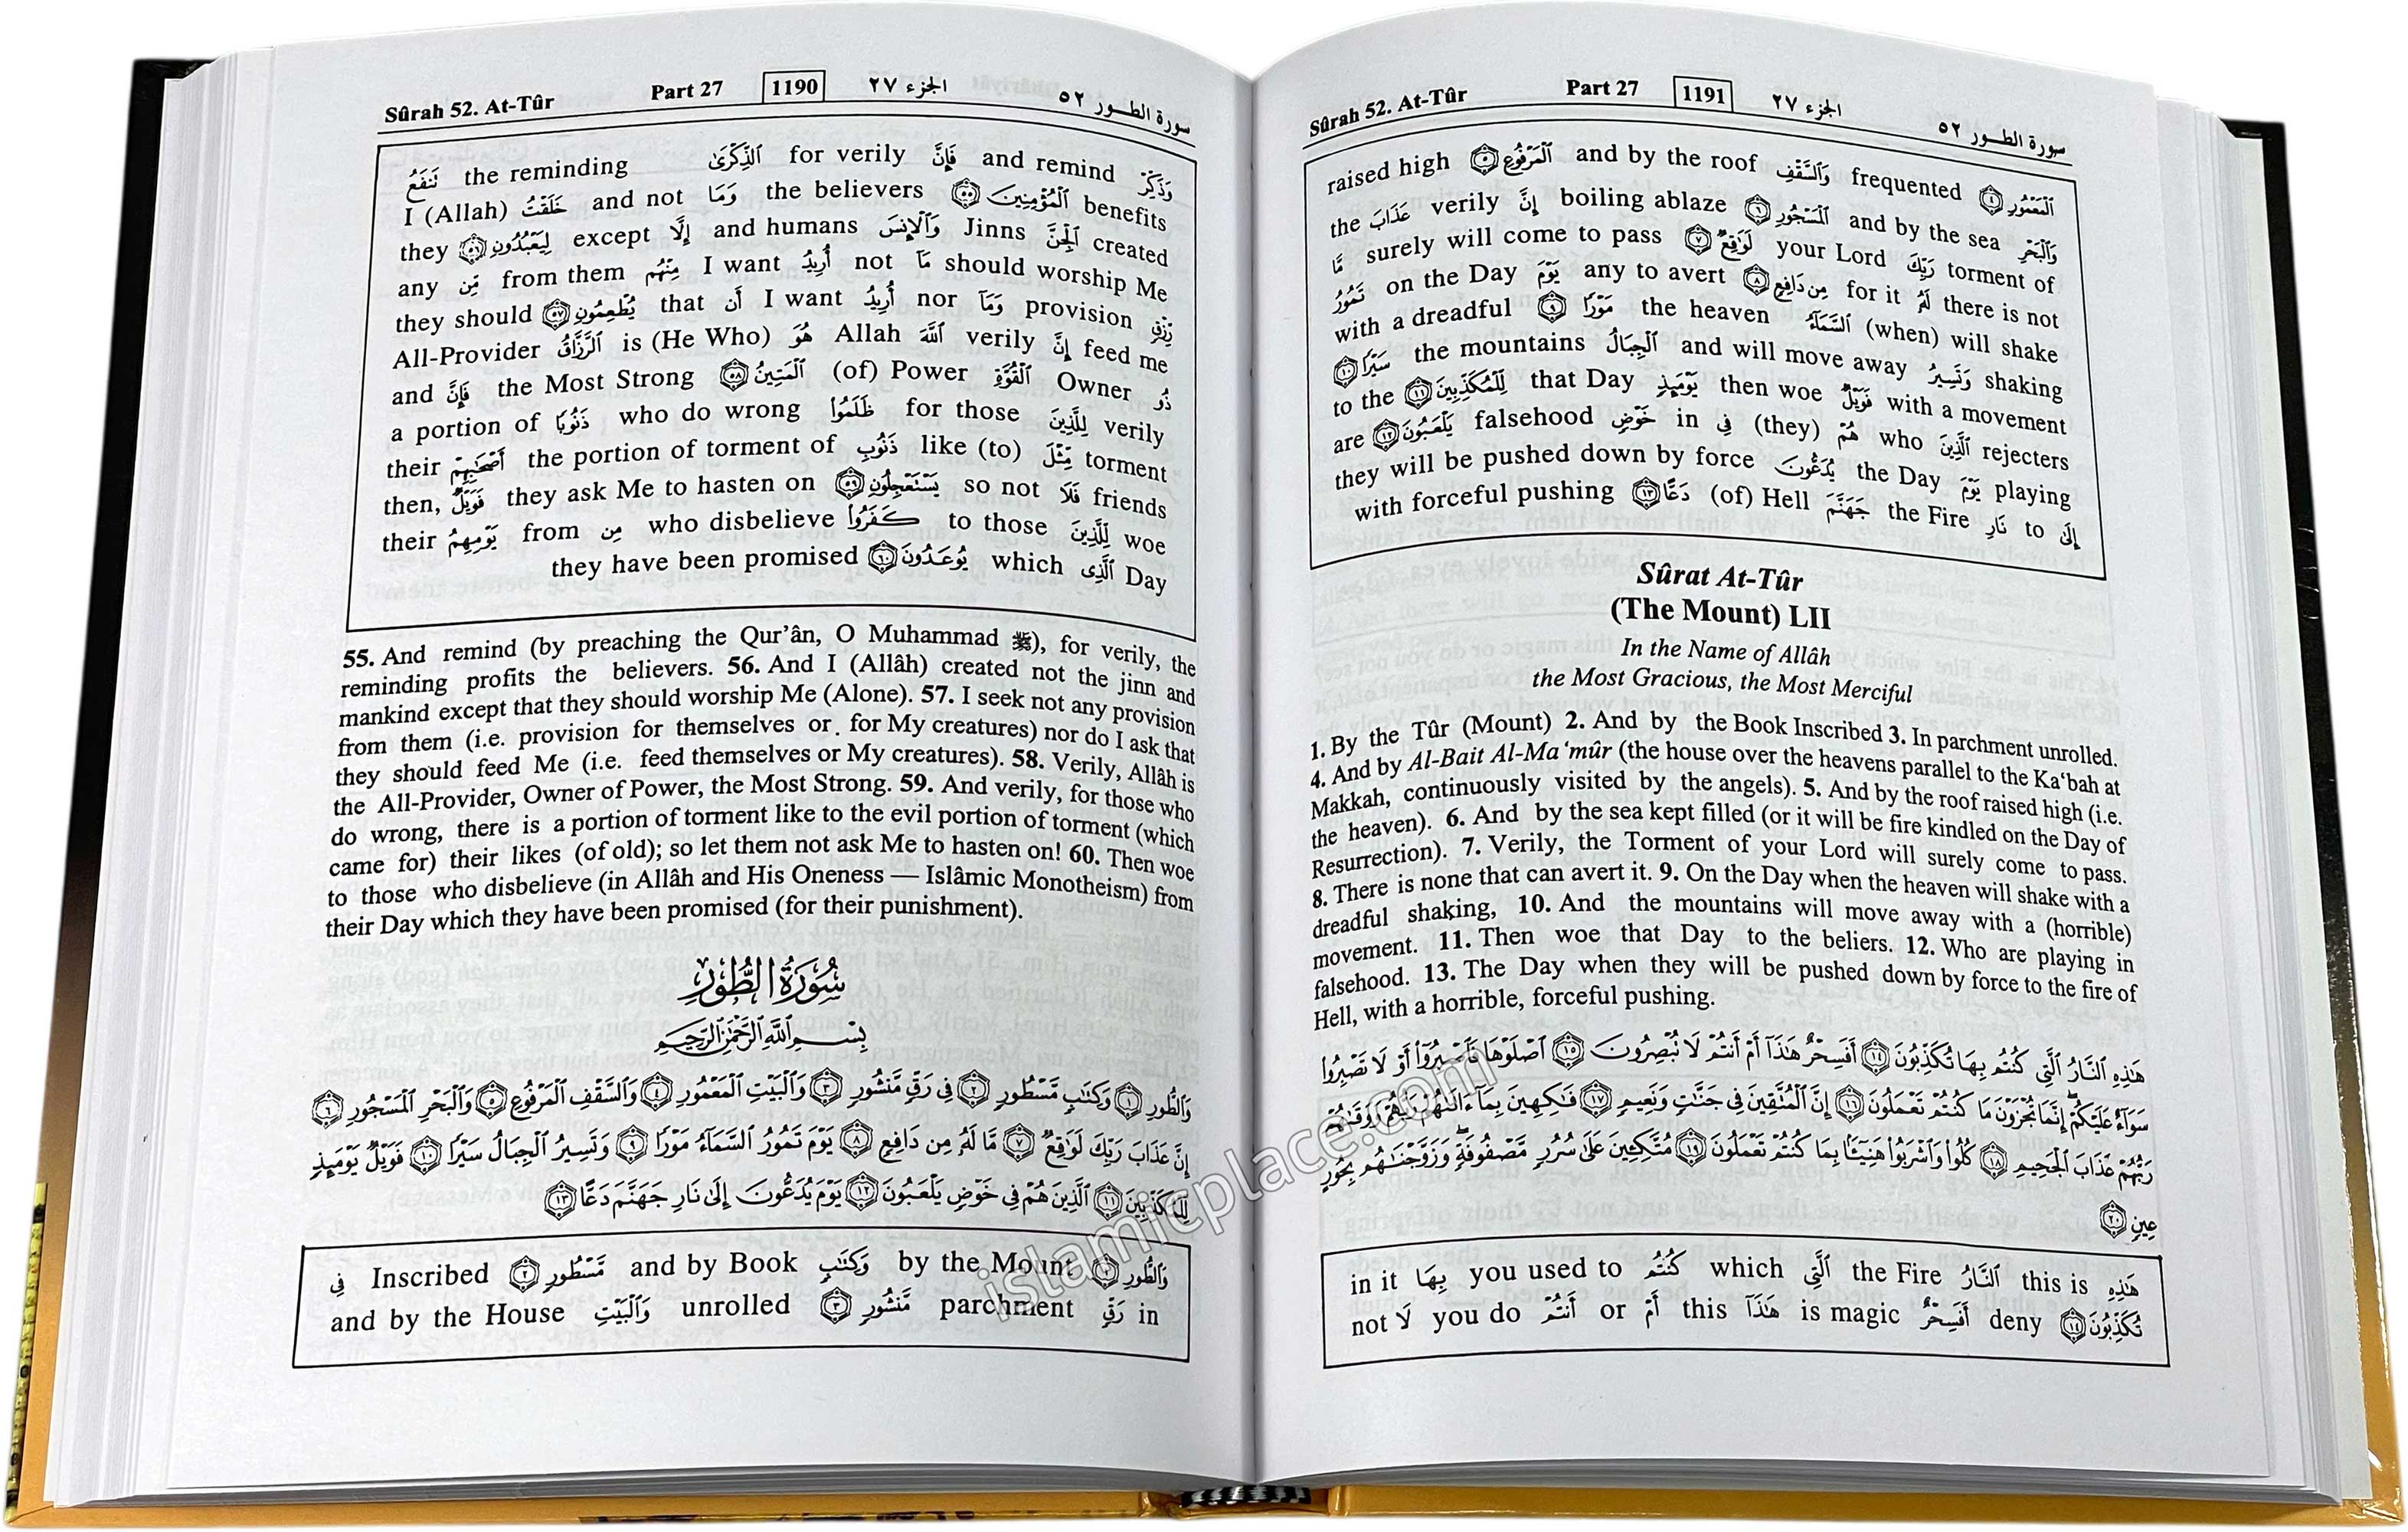 Sûrah 52. At-Tûr Part 27 1190 الجزء ٢٧ سورة الطـــور ٥٢
وَذَكِّرْ and remind فَإِنَّ for verily الذِّكْرَىٰ the reminding تَنفَعُ
benefits الْمُؤْمِنِينَ ﴿٥٥﴾ the believers وَمَا and not خَلَقْتُ I (Allah)
created الْجِنَّ Jinns وَالْإِنسَ and humans إِلَّا except لِيَعْبُدُونِ ﴿٥٦﴾ they
should worship Me مَا not أُرِيدُ I want مِنْهُم from them مِّن any
رِّزْقٍ provision وَمَا nor أُرِيدُ I want أَن that يُطْعِمُونِ ﴿٥٧﴾ they should
feed me إِنَّ verily اللَّهَ Allah هُوَ is (He Who) الرَّزَّاقُ All-Provider
ذُو Owner الْقُوَّةِ (of) Power الْمَتِينُ ﴿٥٨﴾ the Most Strong فَإِنَّ and
verily لِلَّذِينَ for those ظَلَمُوا who do wrong ذَنُوبًا a portion of
torment مِّثْلَ like (to) ذَنُوبِ the portion of torment of أَصْحَابِهِمْ their
friends فَلَا so not يَسْتَعْجِلُونِ ﴿٥٩﴾ they ask Me to hasten on فَوَيْلٌ then,
woe لِّلَّذِينَ to those كَفَرُوا who disbelieve مِن from يَوْمِهِمُ their
Day الَّذِي which يُوعَدُونَ ﴿٦٠﴾ they have been promised
55. And remind (by preaching the Qur’ân, O Muhammad ﷺ), for verily, the
reminding profits the believers. 56. And I (Allâh) created not the jinn and
mankind except that they should worship Me (Alone). 57. I seek not any provision
from them (i.e. provision for themselves or. for My creatures) nor do I ask that
they should feed Me (i.e. feed themselves or My creatures). 58. Verily, Allâh is
the All-Provider, Owner of Power, the Most Strong. 59. And verily, for those who
do wrong, there is a portion of torment like to the evil portion of torment (which
came for) their likes (of old); so let them not ask Me to hasten on! 60. Then woe
to those who disbelieve (in Allâh and His Oneness — Islâmic Monotheism) from
their Day which they have been promised (for their punishment).
سُورَةُ الطُّورِ
بِسْمِ اللَّهِ الرَّحْمَٰنِ الرَّحِيمِ
وَالطُّورِ ﴿١﴾ وَكِتَابٍ مَّسْطُورٍ ﴿٢﴾ فِي رَقٍّ مَّنشُورٍ ﴿٣﴾ وَالْبَيْتِ الْمَعْمُورِ ﴿٤﴾ وَالسَّقْفِ الْمَرْفُوعِ ﴿٥﴾ وَالْبَحْرِ الْمَسْجُورِ ﴿٦﴾
إِنَّ عَذَابَ رَبِّكَ لَوَاقِعٌ ﴿٧﴾ مَّا لَهُ مِن دَافِعٍ ﴿٨﴾ يَوْمَ تَمُورُ السَّمَاءُ مَوْرًا ﴿٩﴾ وَتَسِيرُ الْجِبَالُ سَيْرًا ﴿١٠﴾ فَوَيْلٌ يَوْمَئِذٍ
لِّلْمُكَذِّبِينَ ﴿١١﴾ الَّذِينَ هُمْ فِي خَوْضٍ يَلْعَبُونَ ﴿١٢﴾ يَوْمَ يُدَعُّونَ إِلَىٰ نَارِ جَهَنَّمَ دَعًّا ﴿١٣﴾
وَالطُّورِ ﴿١﴾ by the Mount وَكِتَابٍ and by Book مَّسْطُورٍ ﴿٢﴾ Inscribed فِي
in رَقٍّ parchment مَّنشُورٍ ﴿٣﴾ unrolled وَالْبَيْتِ and by the House
Sûrah 52. At-Tûr Part 27 1191 الجزء ٢٧ سورة الطـــور ٥٢
الْمَعْمُورِ ﴿٤﴾ frequented وَالسَّقْفِ and by the roof الْمَرْفُوعِ ﴿٥﴾ raised high
وَالْبَحْرِ and by the sea الْمَسْجُورِ ﴿٦﴾ boiling ablaze إِنَّ verily عَذَابَ the
torment of رَبِّكَ your Lord لَوَاقِعٌ ﴿٧﴾ surely will come to pass مَّا
there is not لَهُ for it مِن دَافِعٍ ﴿٨﴾ any to avert يَوْمَ on the Day تَمُورُ
(when) will shake السَّمَاءُ the heaven مَوْرًا ﴿٩﴾ with a dreadful
shaking وَتَسِيرُ and will move away الْجِبَالُ the mountains سَيْرًا ﴿١٠﴾
with a movement فَوَيْلٌ then woe يَوْمَئِذٍ that Day لِّلْمُكَذِّبِينَ ﴿١١﴾ to the
rejecters الَّذِينَ who هُمْ (they) فِي in خَوْضٍ falsehood يَلْعَبُونَ ﴿١٢﴾ are
playing يَوْمَ the Day يُدَعُّونَ they will be pushed down by force
إِلَىٰ to نَارِ the Fire جَهَنَّمَ (of) Hell دَعًّا ﴿١٣﴾ with forceful pushing
Sûrat At-Tûr
(The Mount) LII
In the Name of Allâh
the Most Gracious, the Most Merciful
1. By the Tûr (Mount) 2. And by the Book Inscribed 3. In parchment unrolled.
4. And by Al-Bait Al-Ma‘mûr (the house over the heavens parallel to the Ka‘bah at
Makkah, continuously visited by the angels). 5. And by the roof raised high (i.e.
the heaven). 6. And by the sea kept filled (or it will be fire kindled on the Day of
Resurrection). 7. Verily, the Torment of your Lord will surely come to pass.
8. There is none that can avert it. 9. On the Day when the heaven will shake with a
dreadful shaking, 10. And the mountains will move away with a (horrible)
movement. 11. Then woe that Day to the beliers. 12. Who are playing in
falsehood. 13. The Day when they will be pushed down by force to the fire of
Hell, with a horrible, forceful pushing.
هَٰذِهِ النَّارُ الَّتِي كُنتُم بِهَا تُكَذِّبُونَ ﴿١٤﴾ أَفَسِحْرٌ هَٰذَا أَمْ أَنتُمْ لَا تُبْصِرُونَ ﴿١٥﴾ اصْلَوْهَا فَاصْبِرُوا أَوْ لَا تَصْبِرُوا
سَوَاءٌ عَلَيْكُمْ إِنَّمَا تُجْزَوْنَ مَا كُنتُمْ تَعْمَلُونَ ﴿١٦﴾ إِنَّ الْمُتَّقِينَ فِي جَنَّاتٍ وَنَعِيمٍ ﴿١٧﴾ فَاكِهِينَ بِمَا آتَاهُمْ رَبُّهُمْ وَوَقَاهُمْ
رَبُّهُمْ عَذَابَ الْجَحِيمِ ﴿١٨﴾ كُلُوا وَاشْرَبُوا هَنِيئًا بِمَا كُنتُمْ تَعْمَلُونَ ﴿١٩﴾ مُتَّكِئِينَ عَلَىٰ سُرُرٍ مَّصْفُوفَةٍ وَزَوَّجْنَاهُم بِحُورٍ
عِينٍ ﴿٢٠﴾
هَٰذِهِ this is النَّارُ the Fire الَّتِي which كُنتُم you used to بِهَا in it
تُكَذِّبُونَ ﴿١٤﴾ deny أَفَسِحْرٌ is magic هَٰذَا this أَمْ or أَنتُمْ you do لَا not
islamicplace.com